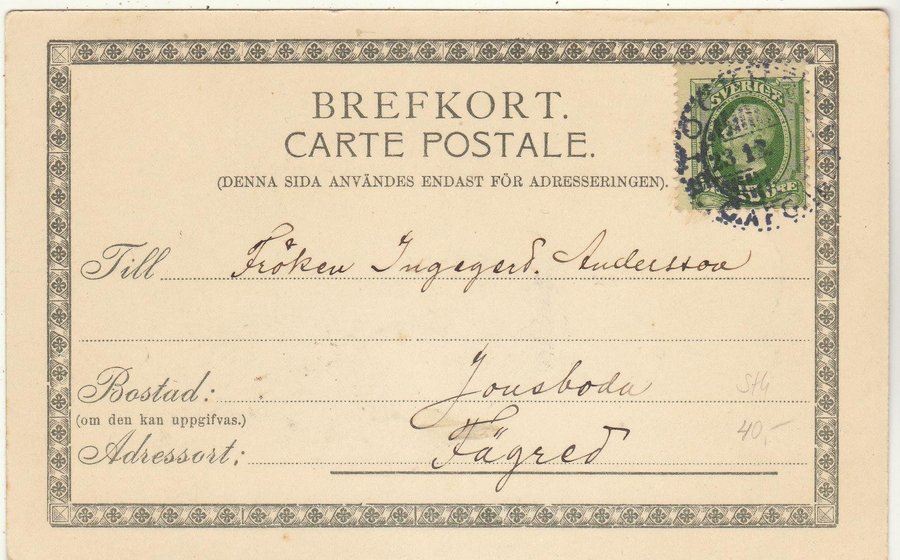 BREFKORT.
CARTE POSTALE.
(DENNA SIDA ANVÄNDES ENDAST FÖR ADRESSERINGEN).
SVERIGE
ÖRE
Till Fröken Ingegerd. Andersson
Bostad: Jonsboda
(om den kan uppgifvas.)
Adressort: Fägred
Sth
40,-